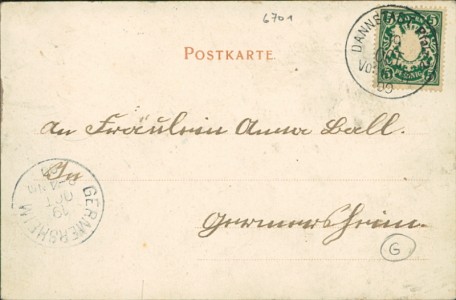 6701
POSTKARTE
5 5
PFENNIG
VO
00
An Fräulein Anna Ball.
In
Germersheim.
GERMERSHEIM
19
OCT
G